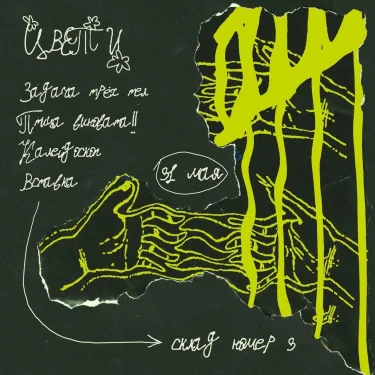 ЦВЕТИ
Задача трёх тел
Птица виновата!!
Калейдоскоп
31 мая
склад номер 3